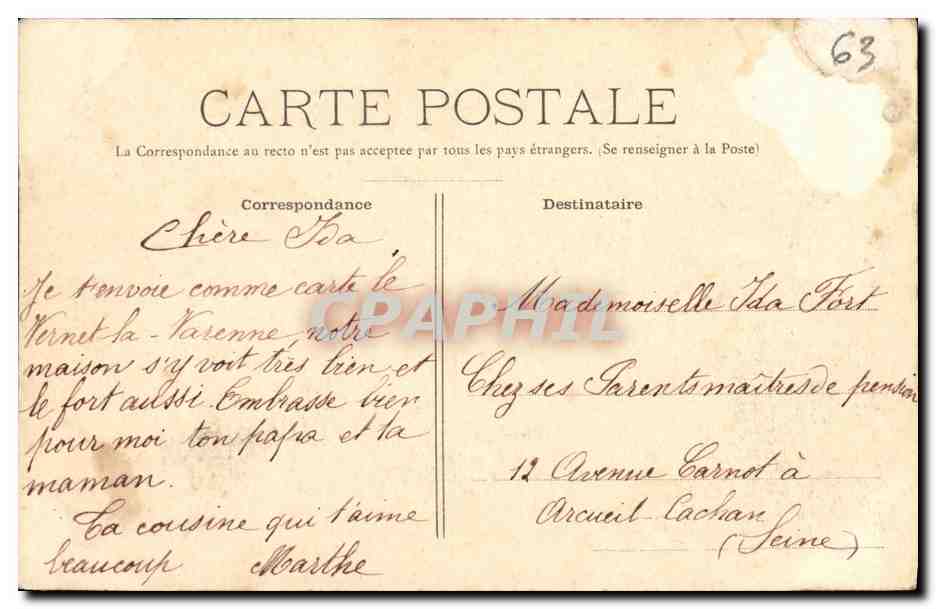 63
CARTE POSTALE
La Correspondance au recto n'est pas acceptee par tous les pays étrangers. (Se renseigner à la Poste)
Correspondance
Chère Ida
Je t'envoie comme carte le
Vernet-la-Varenne, notre
maison s'y voit très bien et
le fort aussi. Embrasse bien
pour moi ton papa et ta
maman.
Ta cousine qui t'aime
beaucoup Marthe
Destinataire
Mademoiselle Ida Fort
Chez ses Parents maîtres de pension
12 Avenue Carnot à
Arcueil-Cachan
(Seine)
CPAPHIL